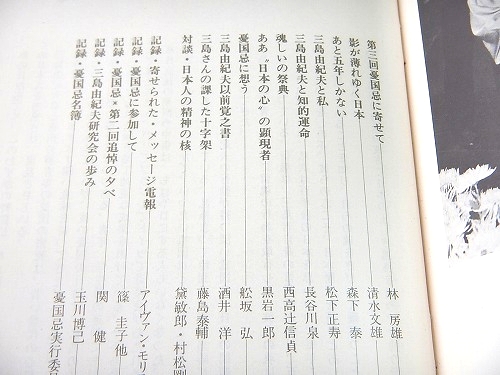 第三回憂国忌に寄せて 林 房雄
影が薄れゆく日本 清水文雄
あと五年しかない 森下 泰
三島由紀夫と私 松下正寿
三島由紀夫と知的運命 長谷川泉
魂しいの祭典 西高辻信貞
ああ〝日本の心〟の顕現者 黒岩一郎
憂国忌に想う 舩坂 弘
三島由紀夫以前覚之書 酒井 洋
三島さんの課した十字架 藤島泰輔
対談・日本人の精神の核 黛敏郎・村松剛
記録・寄せられた・メッセージ電報 アイヴァン・モリ
記録・憂国忌に参加して 篠 圭子他
記録・憂国忌×第二回追悼の夕べ 関 健
記録・三島由紀夫研究会の歩み 玉川博己
記録・憂国忌名簿 憂国忌実行委員